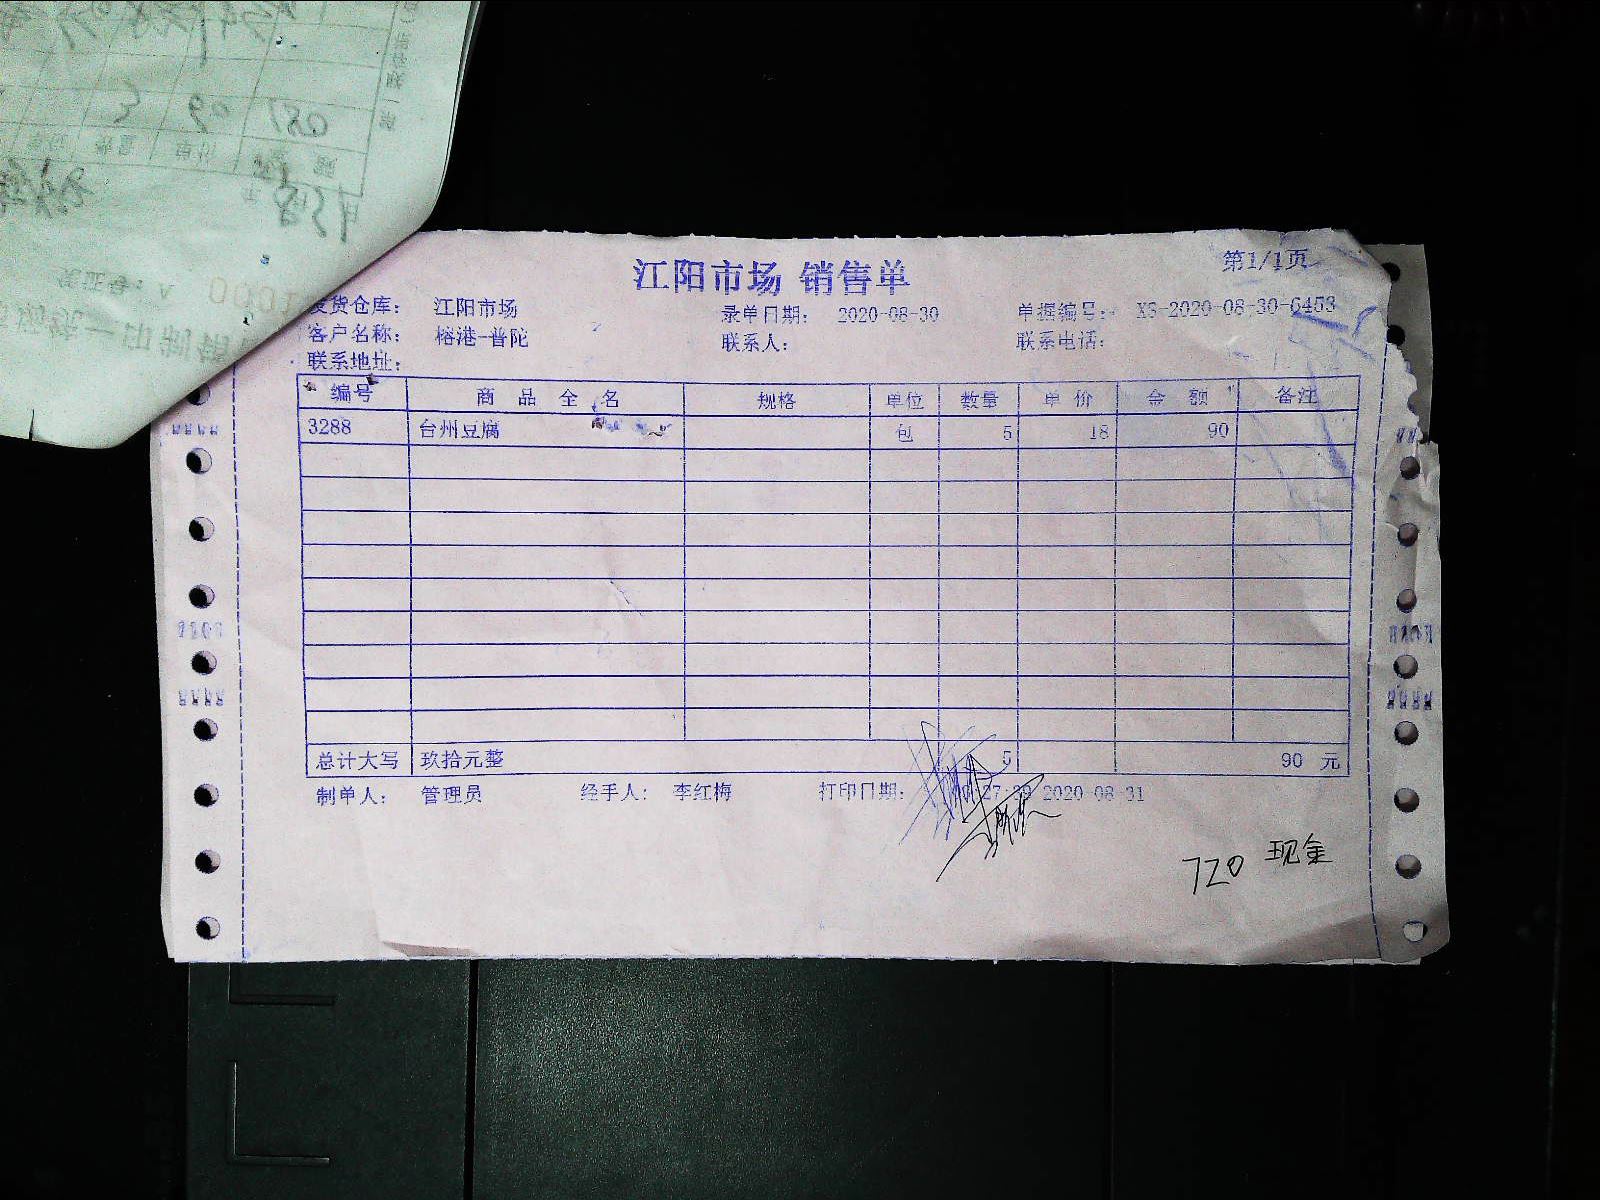 江阳市场 销售单
第1/1页
发货仓库： 江阳市场 录单日期： 2020-08-30 单据编号： XS-2020-08-30-6453
客户名称： 榕港-普陀 联系人： 联系电话：
联系地址：
编号 商品全名 规格 单位 数量 单价 金额 备注
3288 台州豆腐 包 5 18 90
总计大写 玖拾元整 5 90 元
制单人： 管理员 经手人： 李红梅 打印日期： :27:39 2020-08-31
720 现金